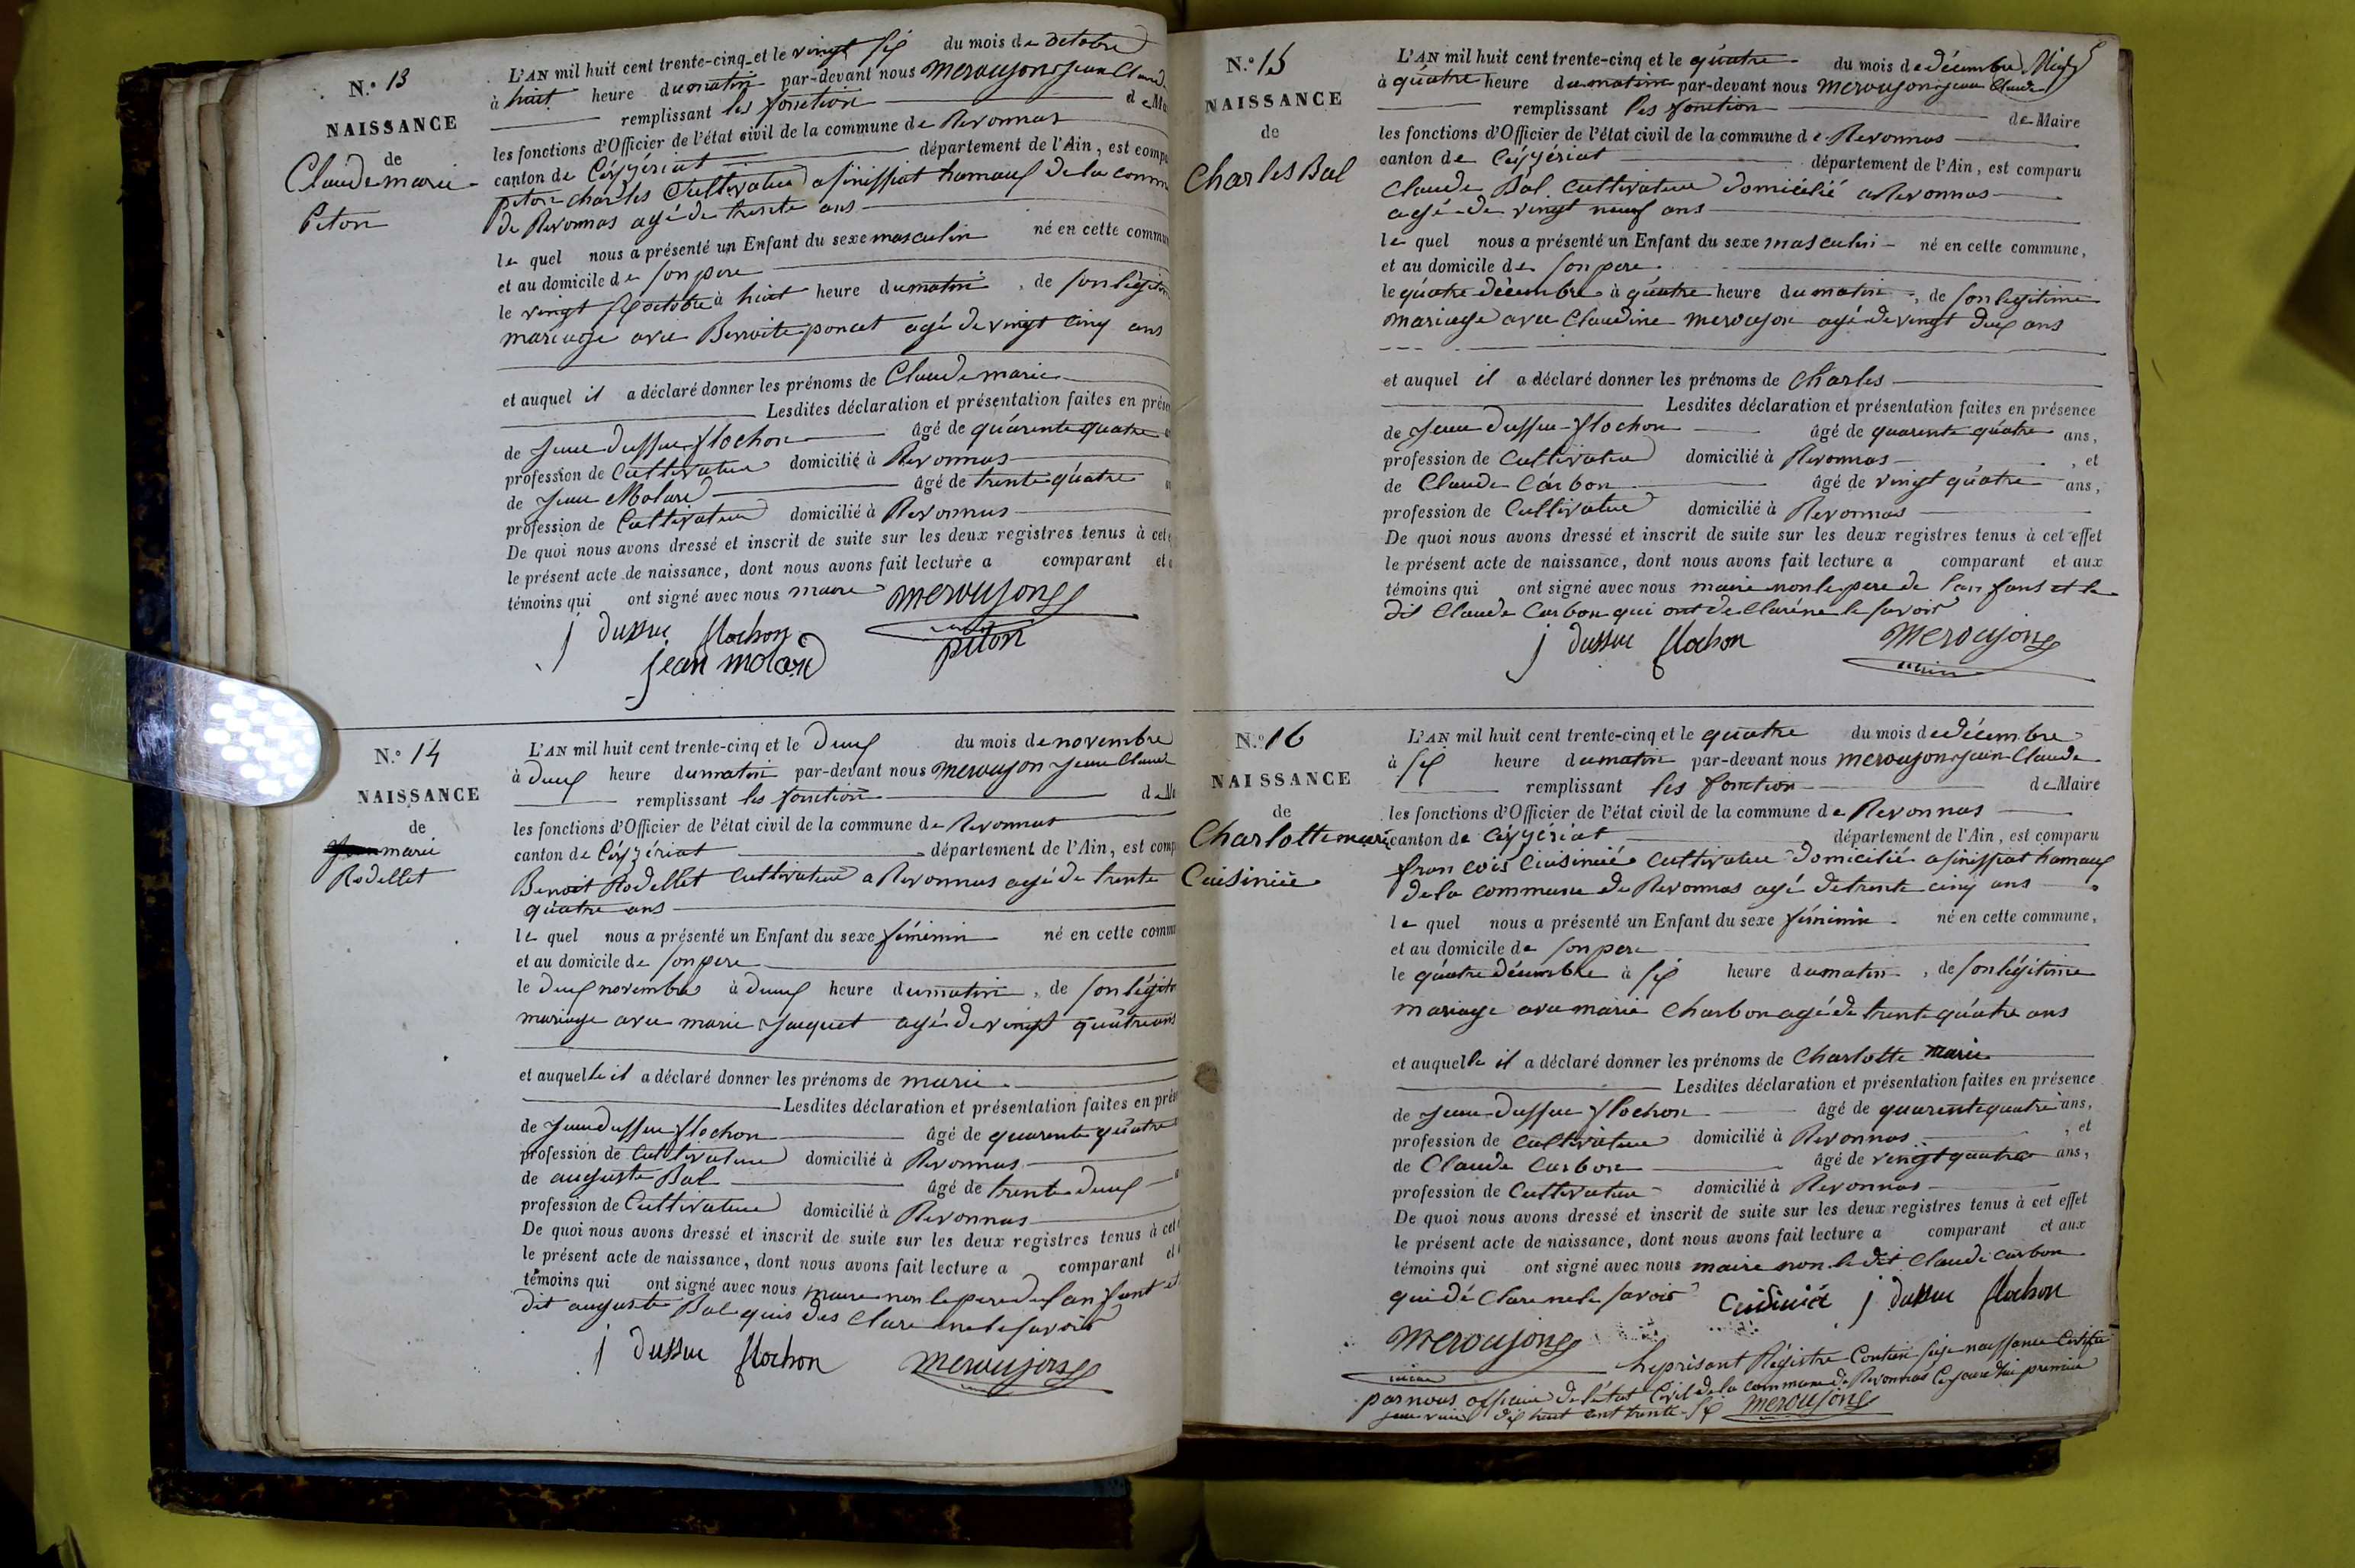 N.° 13
NAISSANCE
de
Claude marie
Piton
L'AN mil huit cent trente-cinq et le vingt six du mois de octobre
à huit heure du matin par-devant nous meroujon jean Claude
remplissant les fonction de Ma
les fonctions d'Officier de l'état civil de la commune de Revonnas
canton de Céyzériat département de l'Ain, est compa
piton charles Cultivateur a sinissiat hamaux de la comm
de Revonnas agé de trente ans
le quel nous a présenté un Enfant du sexe masculin né en cette commu
et au domicile de son pere
le vingt six octobre à huit heure du matin, de son légitim
mariage avec Benoite poncet agé de vingt cinq ans
et auquel il a déclaré donner les prénoms de Claude marie
Lesdites déclaration et présentation faites en prése
de jean dussuc flochon âgé de quarente quatre
profession de Cultivateur domicilié à Revonnas
de jean Molard âgé de trente quatre
profession de Cultivateur domicilié à Revonnas
De quoi nous avons dressé et inscrit de suite sur les deux registres tenus à cet
le présent acte de naissance, dont nous avons fait lecture a comparant et
témoins qui ont signé avec nous maire meroujon
j dussuc flochon piton
jean molard
N.° 14
NAISSANCE
de
marie
Rodellet
L'AN mil huit cent trente-cinq et le deux du mois de novembre
à deux heure du matin par-devant nous meroujon jean Claude
remplissant les fonction de Ma
les fonctions d'Officier de l'état civil de la commune de Revonnas
canton de Céyzériat département de l'Ain, est comp
Benoit Rodellet cultivateur a Revonnas agé de trente
quatre ans
le quel nous a présenté un Enfant du sexe féminin né en cette commu
et au domicile de son pere
le deux novembre à deux heure du matin, de son légiti
mariage avec marie jacquet agé de vingt quatre ans
et auquelle il a déclaré donner les prénoms de marie
Lesdites déclaration et présentation faites en prés
de jean dussuc flochon âgé de quarente quatre
profession de Cultivateur domicilié à Revonnas
de auguste Bal âgé de trente deux
profession de Cultivateur domicilié à Revonnas
De quoi nous avons dressé et inscrit de suite sur les deux registres tenus à cet
le présent acte de naissance, dont nous avons fait lecture a comparant et
témoins qui ont signé avec nous maire non le pere de l'an fant et
dit auguste Bal quis des clare ne le savoir
j dussuc flochon meroujon
N.° 15
NAISSANCE
de
Charles Bal
L'AN mil huit cent trente-cinq et le quatre du mois de décembre
à quatre heure du matin par-devant nous meroujon jean Claude
remplissant les fonction de Maire
les fonctions d'Officier de l'état civil de la commune de Revonnas
canton de Céyzériat département de l'Ain, est comparu
Claude Bal Cultivateur domicilié a Revonnas
agé de vingt neuf ans
le quel nous a présenté un Enfant du sexe masculin né en cette commune,
et au domicile de son pere
le quatre décembre à quatre heure du matin, de son légitime
mariage avec Claudine meroujon agé de vingt deux ans
et auquel il a déclaré donner les prénoms de Charles
Lesdites déclaration et présentation faites en présence
de jean dussuc flochon âgé de quarente quatre ans,
profession de Cultivateur domicilié à Revonnas, et
de Claude Carbon âgé de vingt quatre ans,
profession de Cultivateur domicilié à Revonnas
De quoi nous avons dressé et inscrit de suite sur les deux registres tenus à cet effet
le présent acte de naissance, dont nous avons fait lecture a comparant et aux
témoins qui ont signé avec nous maire non le pere de l'an fans et le
dit Claude Carbon qui ont de claréne le savoir
j dussuc flochon meroujon
maire
N.° 16
NAISSANCE
de
Charlotte marie
Cuisinié
L'AN mil huit cent trente-cinq et le quatre du mois de décembre
à six heure du matin par-devant nous meroujon jean Claude
remplissant les fonction de Maire
les fonctions d'Officier de l'état civil de la commune de Revonnas
canton de Céyzériat département de l'Ain, est comparu
fran cois Cuisinié Cultivateur domicilié a sinissiat hamaux
de la commune de Revonnas agé de trente cinq ans
le quel nous a présenté un Enfant du sexe féminin né en cette commune,
et au domicile de son pere
le quatre décembre à six heure du matin, de son légitime
mariage avec marie Charbon agé de trente quatre ans
et auquelle il a déclaré donner les prénoms de Charlotte marie
Lesdites déclaration et présentation faites en présence
de jean dussuc flochon âgé de quarente quatre ans,
profession de cultivateur domicilié à Revonnas, et
de Claude Carbon âgé de vingt quatre ans,
profession de Cultivateur domicilié à Revonnas
De quoi nous avons dressé et inscrit de suite sur les deux registres tenus à cet effet
le présent acte de naissance, dont nous avons fait lecture a comparant et aux
témoins qui ont signé avec nous maire non le dit Claude Carbon
qui dé Clare ne le savoir Cuisinié j dussuc flochon
meroujon
maire
le présant Régistre Contien seize naissance Certifié
par nous officier de l'état Civil de la commune de Revonnas Ce jourd'hui premier
janvier dix huit cent trente six meroujon